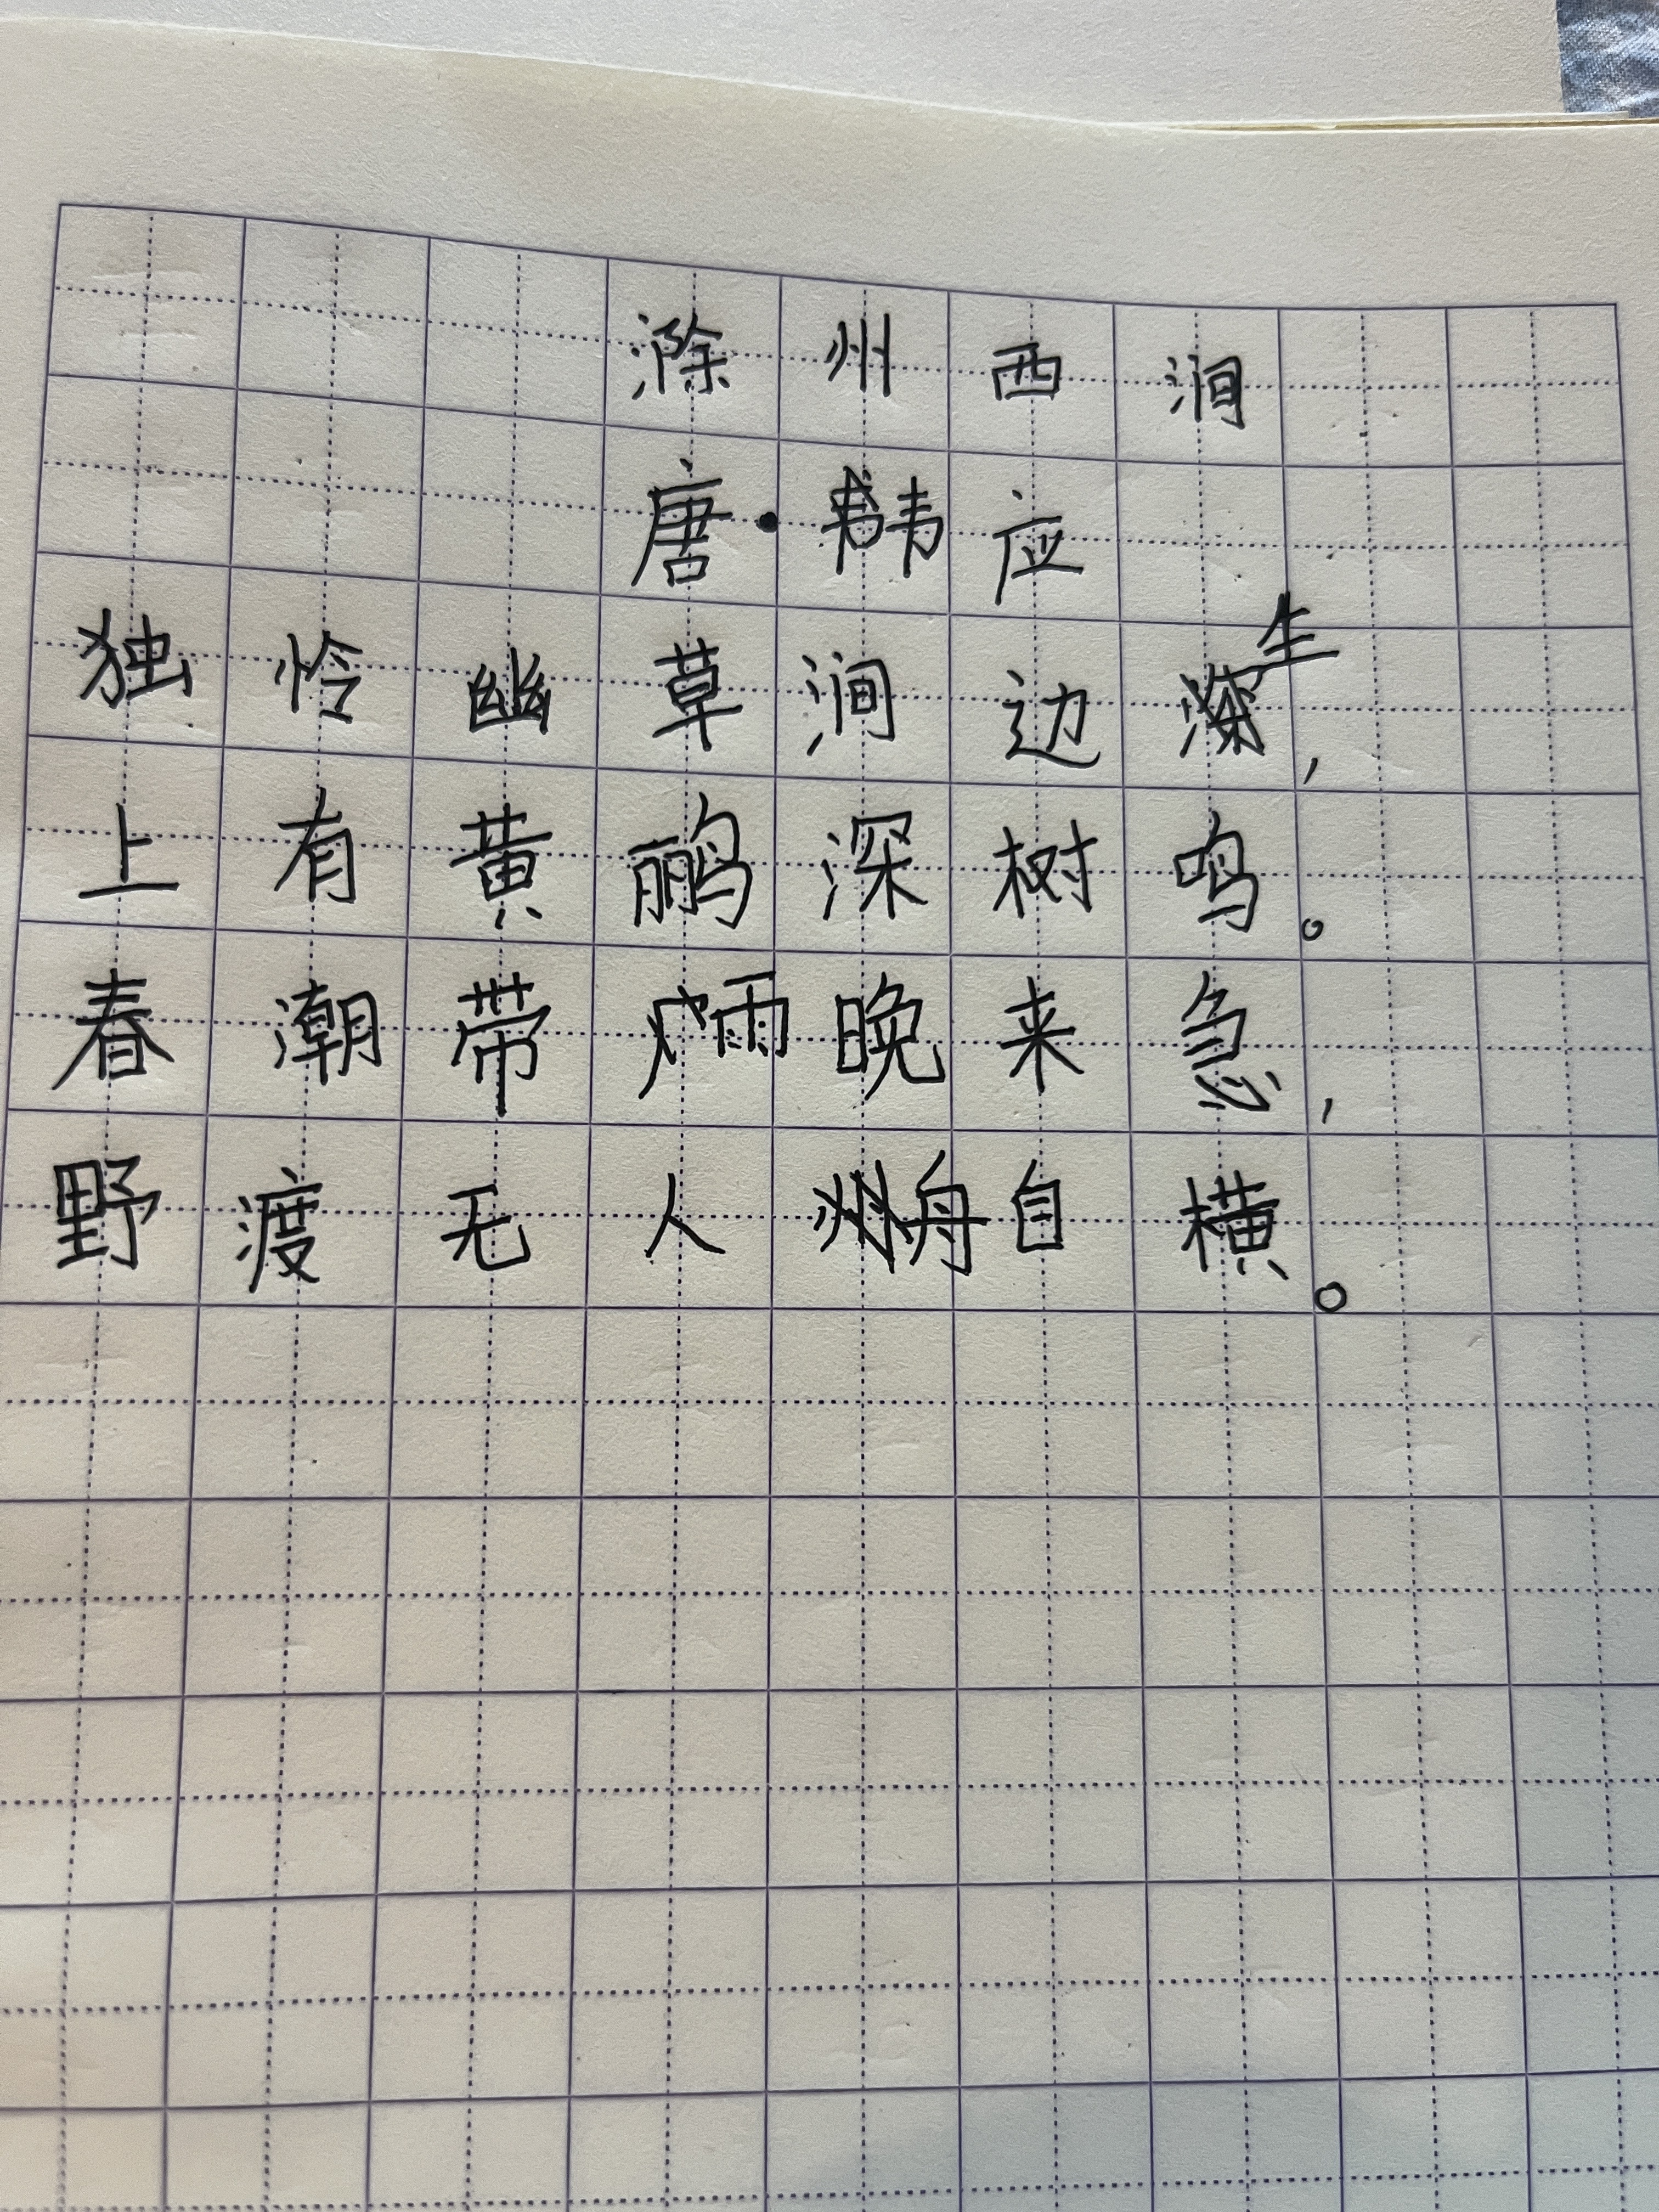 滁州西涧
唐·韦应
独怜幽草涧边生，
上有黄鹂深树鸣。
春潮带雨晚来急，
野渡无人舟自横。